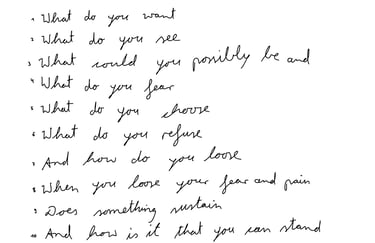 1 What do you want
2 What do you see
3 What could you possibly be and
4 What do you fear
5 What do you choose
6 What do you refuse
7 And how do you loose
8 When you loose your fear and pain
9 Does something sustain
10 And how is it that you can stand